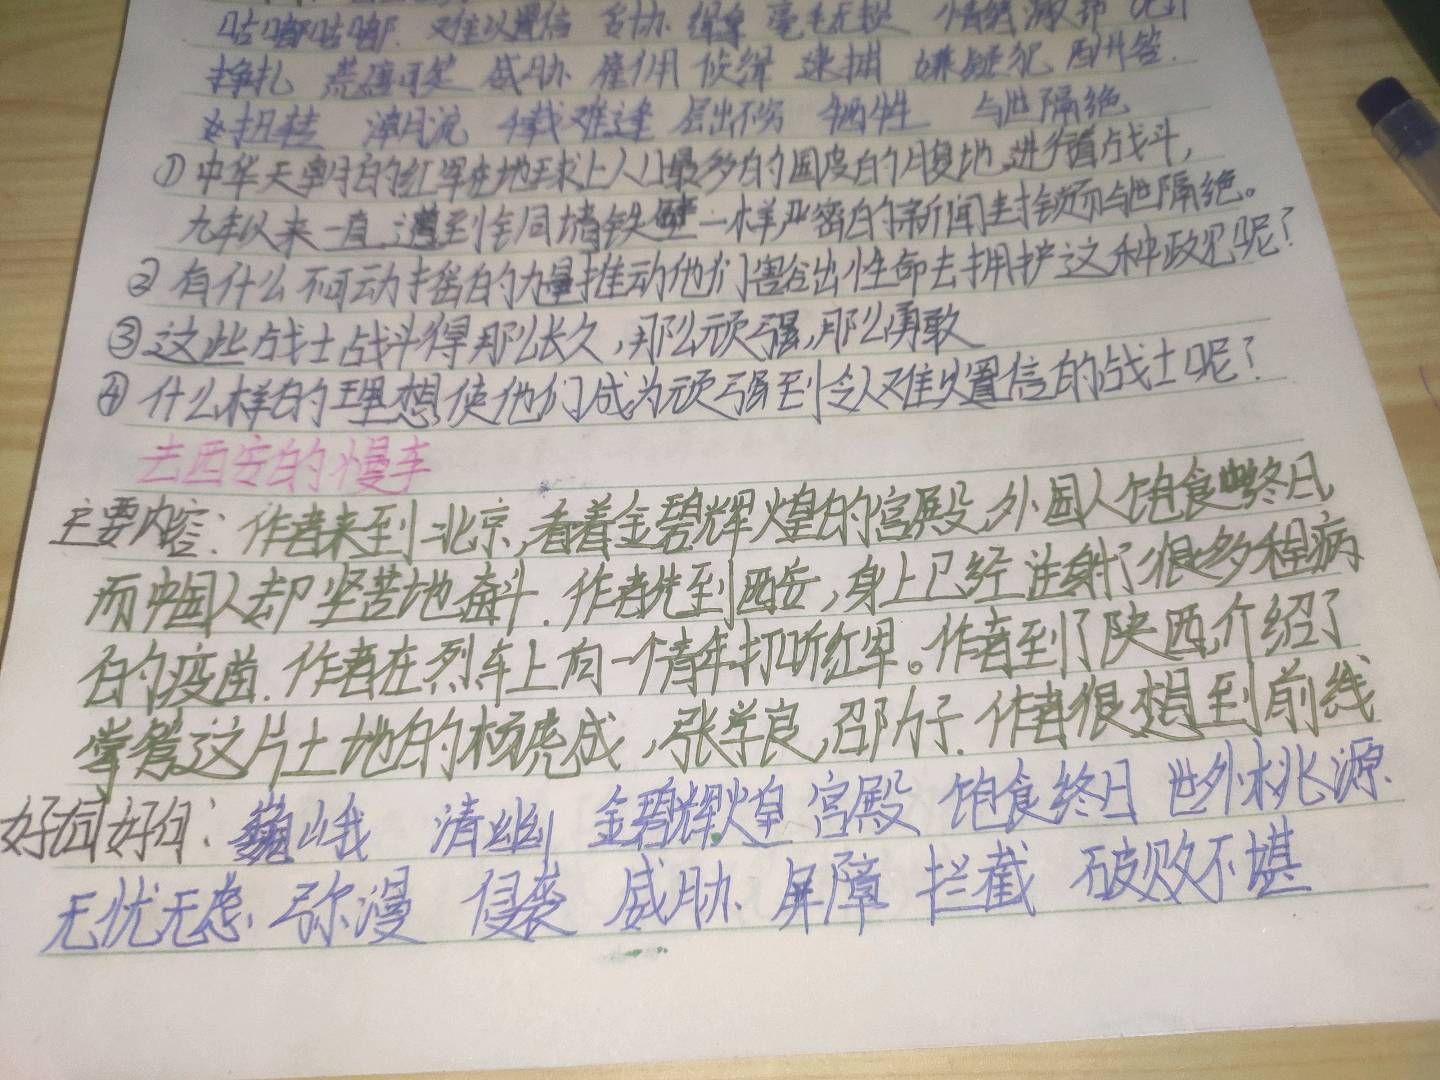 咕嘟咕嘟 难以置信 妥协 绥阜 毫毛无损 情绪
挣扎 荒唐可笑 威胁 雇佣 侦缉 逮捕 嫌疑犯
扭转 潮流 千载难逢 层出不穷 牺牲 与世隔绝
①中华天朝的红军在地球上人口最多的国度的腹地进行着战斗,
九年以来一直遭到铜墙铁壁一样严密的新闻封锁而与世隔绝。
②有什么不可动摇的力量推动他们豁出性命去拥护这种政见呢?
③这些战士战斗得那么长久,那么顽强,那么勇敢
④什么样的理想使他们成为顽强到令人难以置信的战士呢?
去西安的慢车
主要内容:作者来到北京,看着金碧辉煌的宫殿,外国人饱食终日,
而中国人却坚苦地奋斗.作者先到西安,身上已经注射了很多种病
的疫苗.作者在列车上向一个青年打听红军。作者到了陕西,介绍了
掌管这片土地的杨虎成,张学良,邵力子.作者很想到前线
好词好句:巍峨 清幽 金碧辉煌 宫殿 饱食终日 世外桃源
无忧无虑 弥漫 侵袭 威胁 屏障 拦截 破败不堪